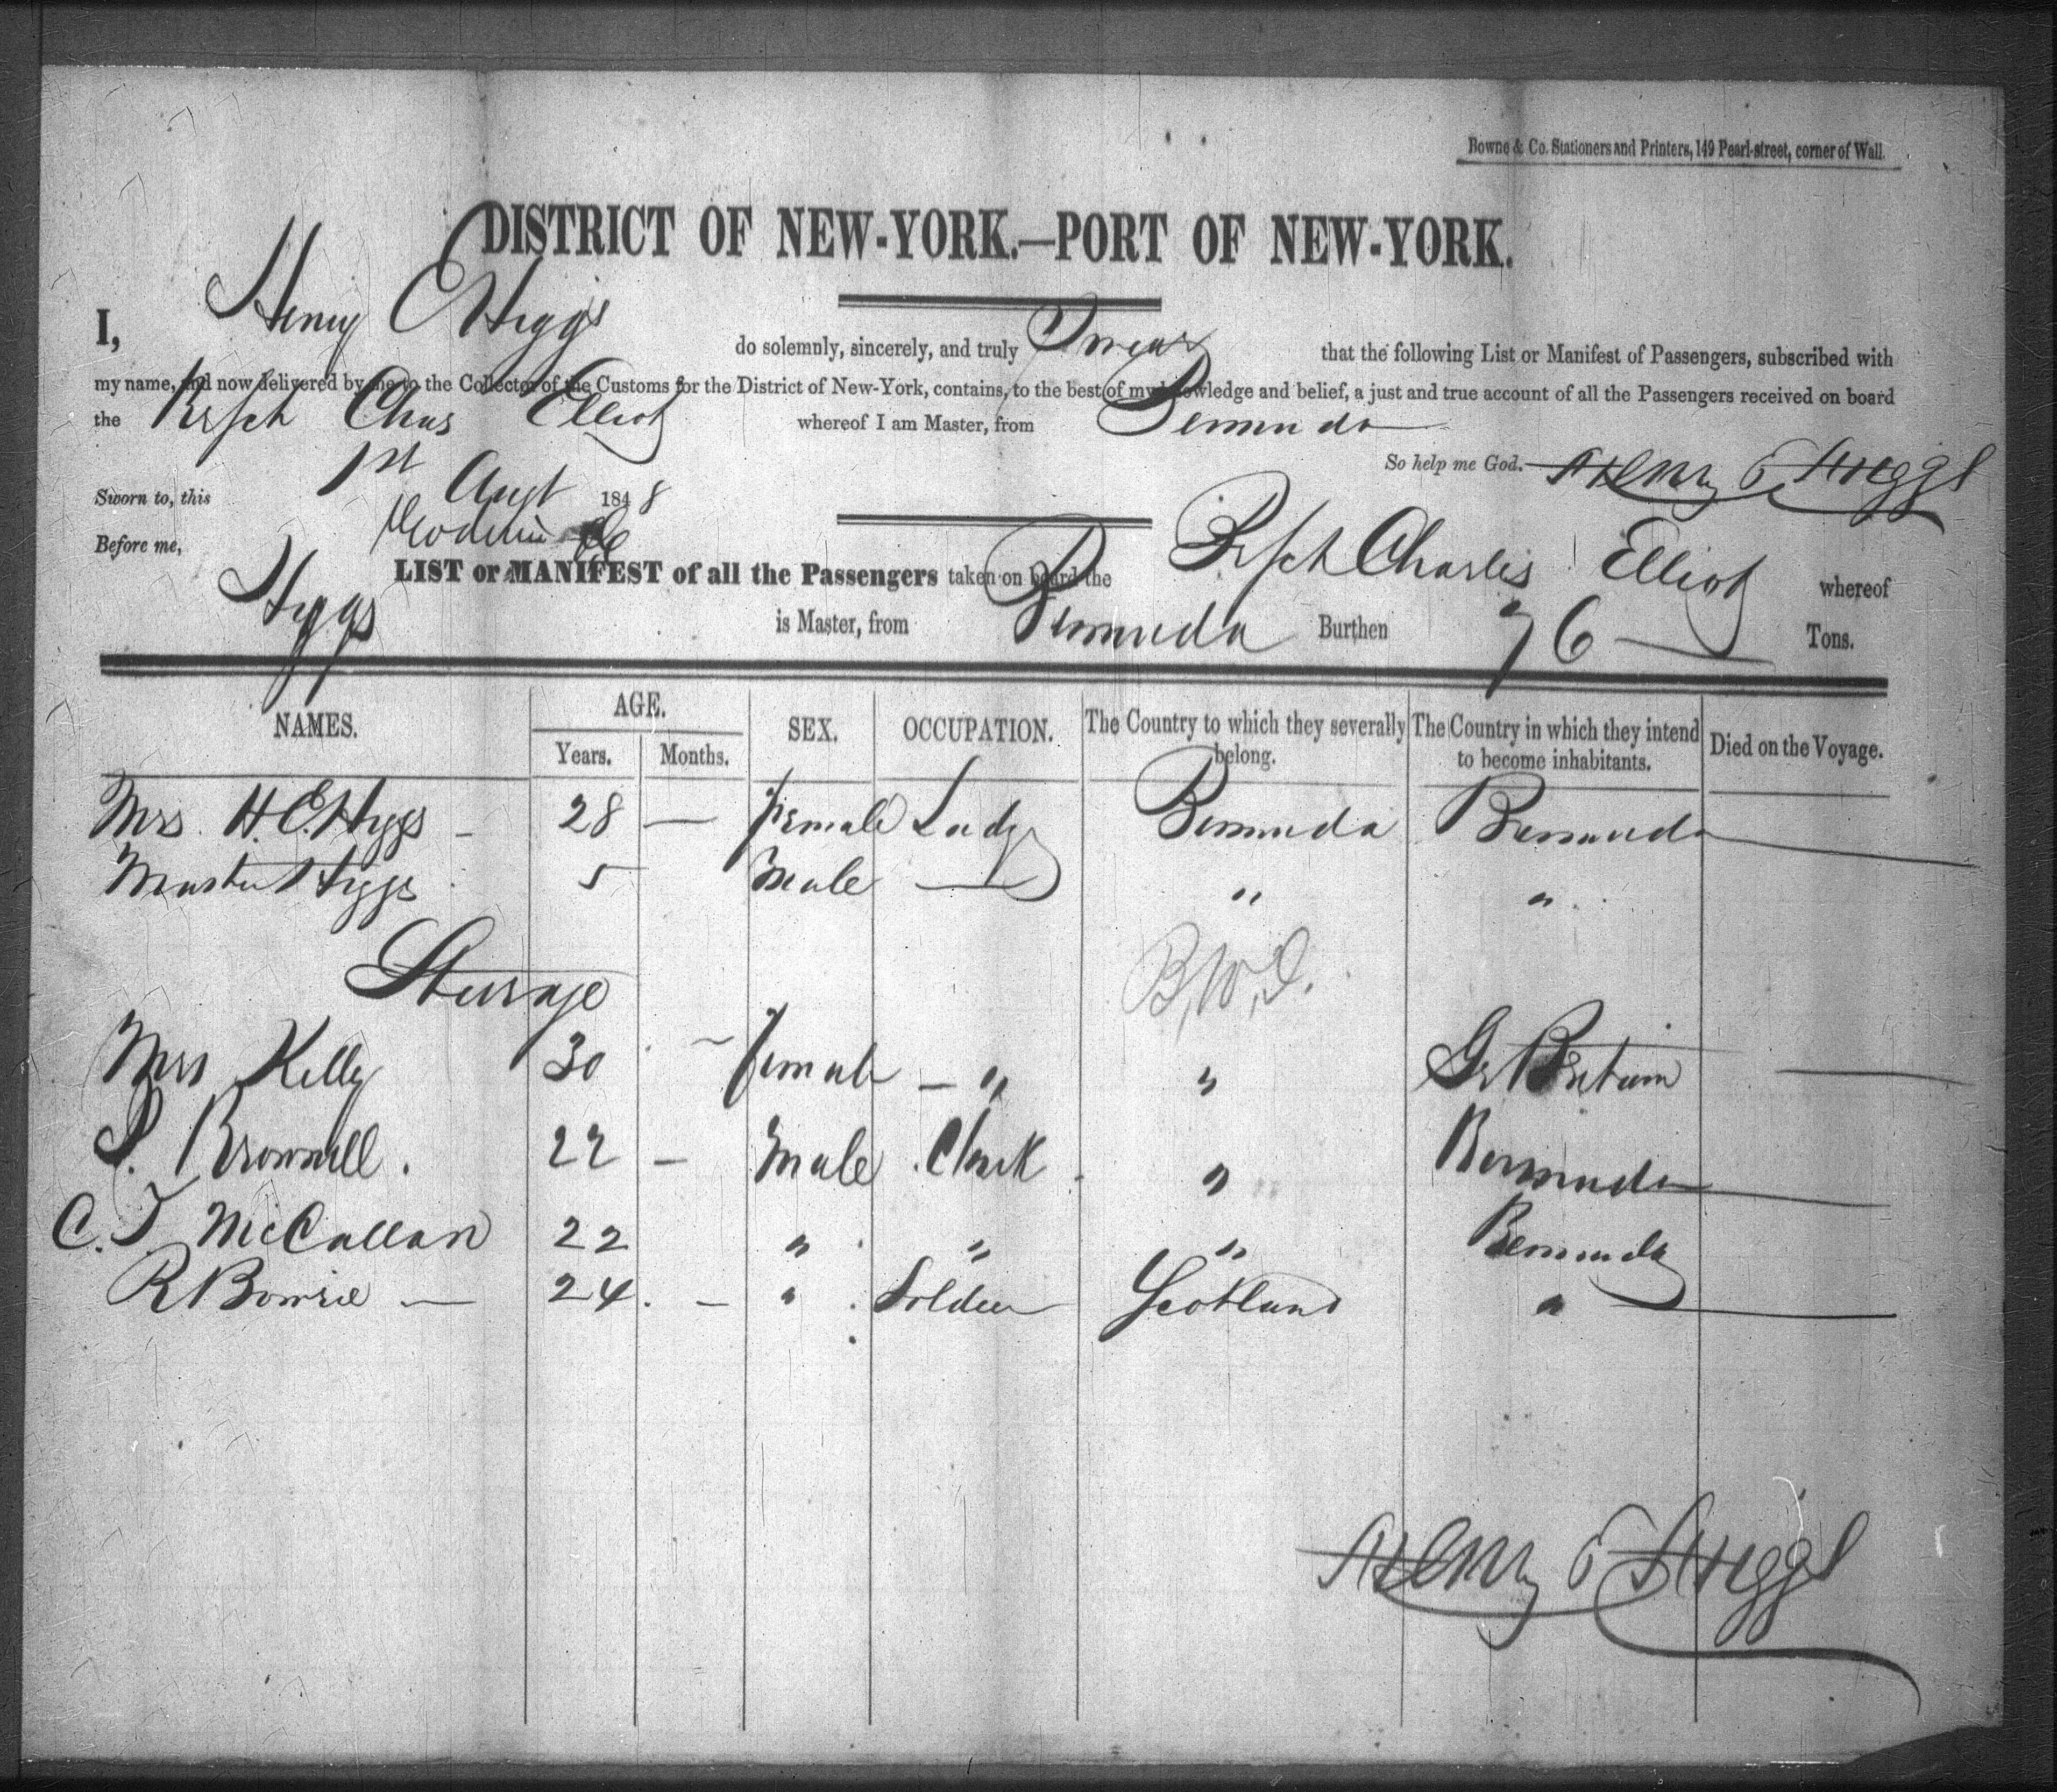 Bowne & Co. Stationers and Printers, 149 Pearl-street, corner of Wall.
DISTRICT OF NEW-YORK.—PORT OF NEW-YORK.
I, Henry E Higgs do solemnly, sincerely, and truly Swear that the following List or Manifest of Passengers, subscribed with
my name, and now delivered by me to the Collector of the Customs for the District of New-York, contains, to the best of my knowledge and belief, a just and true account of all the Passengers received on board
the Br Sch Chas Elliot whereof I am Master, from Bermuda
So help me God. Henry E Higgs
Sworn to, this 1st Augt 1848
Before me,
LIST or MANIFEST of all the Passengers taken on board the Br Sch Charles Elliot whereof
Higgs is Master, from Bermuda Burthen 76 Tons.
NAMES. AGE. SEX. OCCUPATION. The Country to which they severally belong. The Country in which they intend to become inhabitants. Died on the Voyage.
Years. Months.
Mrs. H. E. Higgs 28 — Female Lady Bermuda Bermuda —
Master Higgs 5 Male — " "
Steerage B.W.I.
Mrs Kelly 30 — Female — " " Gr Britain —
Brownell. 22 — Male Clerk " Bermuda —
C. T. McCallan 22 " " " Bermuda
R Bowrie — 24. — " Soldier Scotland " —
Henry E Higgs